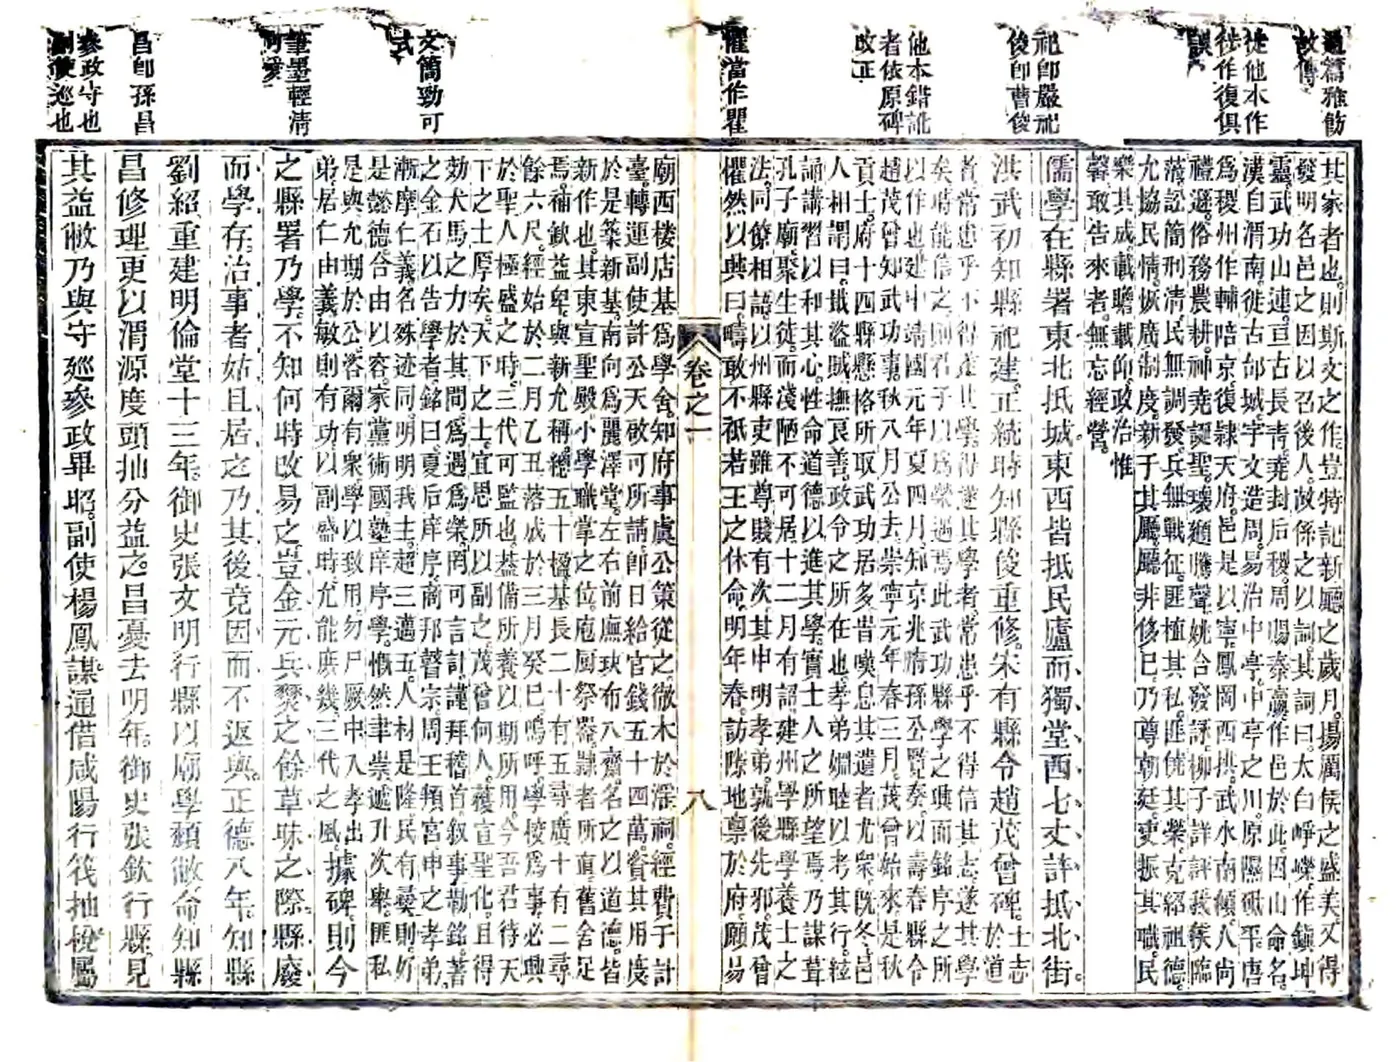 通篇雅飭
徙他本作
徙作復俱
誤
祀即嚴祀
俊即曹俊
他本錯訛
者依原碑
改正
懼當作瞿
文簡勁可
式
筆墨輕清
可愛
昌即孫昌
參政守也
副使巡也
其家者也則斯文之作豈特記新廳之歲月揚厲侯之盛美又得
發明名邑之因以召後人故係之以詞其詞曰太白崢嶸作鎮坤
靈武功山連亘古長青堯封后稷周賜秦嬴作邑於此因山命名
漢自渭南徙古邰城宇文造周易治中亭中亭之川原隰砥平唐
為稷州作輔陪京復隸天府邑是以寧鳳岡西拱武水南傾八尚
禮遜俗務農耕神堯誕聖壞廼騰聲姚合發詠柳子詳評莪蔟臨
蒞訟簡刑清民無調發兵無戰征匪植其私匪饒其榮克紹祖德
允協民情恢廣制度新于其廳廳非修已乃尊朝廷吏振其職民
樂其成載瞻載仰政治惟
馨敢告來者無忘經營
儒學在縣署東北抵城東西皆抵民廬而獨堂西七丈許抵北街
洪武初知縣祀建正統時知縣俊重修宋有縣令趙茂曾碑士志於道
者常患乎不得達其學得遂其學者常患乎不得信其志遂其學
矣時能信之則君子以為榮遇焉此武功縣學之興而銘序之所
以作也建中靖國元年夏四月知京兆府孫公覽奏以壽春縣令
趙茂曾知武功事秋八月公去崇寧元年春三月茂曾始來是秋
貢士府十四縣懸格所取武功居多昔嘆息其遺者尤眾既冬邑
人相謂曰殲盜賊撫良善政令之所在也孝弟婣睦以考其行絃
誦講習以和其心性命道德以進其學實士人之所望焉乃謀葺
孔子廟聚生徒而淺陋不可居十二月有詔建州學縣學養士之
法同僚相語以州縣吏雖尊賤有次其申明孝弟孰後先邪茂曾
懼然以興曰疇敢不祇若王之休命明年春訪隙地稟於府願易
卷之一
八
廟西棲店基為學舍知府事虞公策從之徹木於淫祠經費于計
臺轉運副使許公天啟可所請即日給官錢五十四萬資其用度
於是築新基南向為麗澤堂左右前廡玦布八齋名之以道德皆
新作也其東宣聖殿小學職掌之位庖厨祭器隸者所直舊舍足
焉補歉益卑與新尤稱總五十楹基長二十有五尋廣十有二尋
餘六尺經始於二月乙丑落成於三月癸巳嗚呼學校為事必興
於聖人極盛之時三代可監也葢備所養以期所用今吾君待天
下之士厚矣天下之士宜思所以副之茂曾何人獲宣聖化且得
効犬馬之力於其間為遇為榮罔可言計謹拜稽首敘事勒銘著
之金石以告學者銘曰夏后庠序商邦瞽宗周王頖宮申之孝弟
漸摩仁義名殊迹同明明我主超三邁五人材是隆民有彝則好
是懿德合由以容家黨術國塾庠序學慨然聿崇遞升次舉匪私
是與允期於公咨爾有衆學以致用勿尸厥中入孝出
弟居仁由義敏則有功以副盛時尤能庶幾三代之風據碑則今
之縣署乃學不知何時改易之豈金元兵燹之餘草昧之際縣廢
而學存治事者姑且居之乃其後竟因而不返與正德八年知縣
劉紹重建明倫堂十三年御史張文明行縣以廟學頹敝命知縣
昌修理更以渭源度頭抽分益之昌憂去明年御史張欽行縣見
其益敝乃與守廵參政畢昭副使楊鳳謀通借咸陽行筏抽稅屬